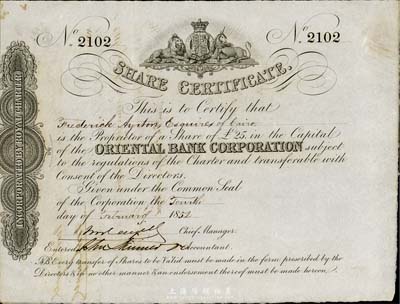 No. 2102 No. 2102
SHARE CERTIFICATE.
This is to Certify that
Frederick Ayrton, Esquire of Cairo
is the Proprietor of a Share of £25, in the Capital
of the ORIENTAL BANK CORPORATION subject
to the regulations of the Charter and transferable with
Consent of the Directors.
Given under the Common Seal
of the Corporation the
day of February 1852
Chief Manager.
Entered Accountant.
N.B. Every transfer of Shares to be Valid must be made in the form prescribed by the
Directors & in no other manner & an endorsement thereof must be made hereon.